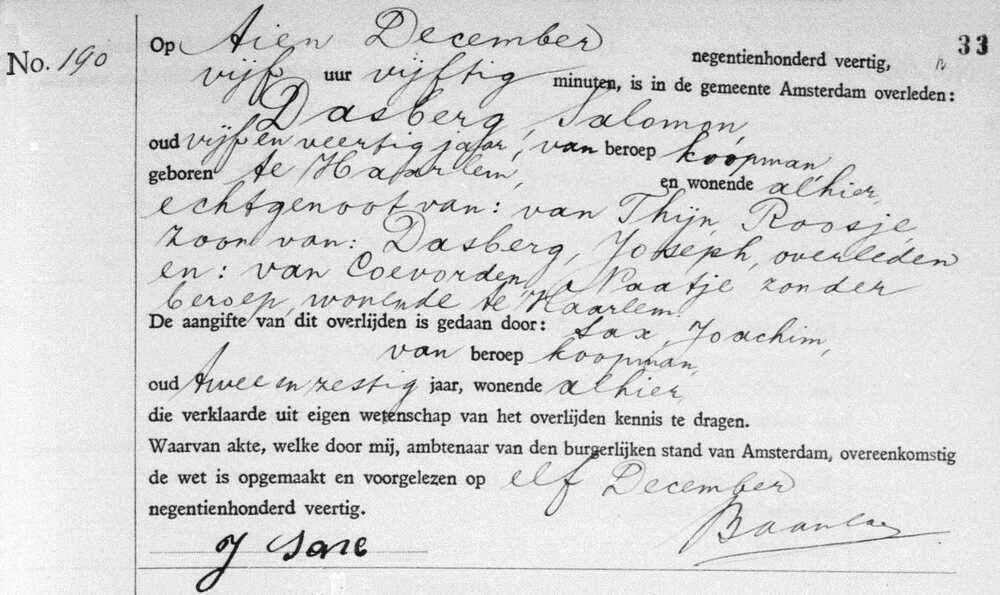 No. 190
33
Op tien December negentienhonderd veertig,
vijf uur vijftig minuten, is in de gemeente Amsterdam overleden:
Dasberg, Salomon,
oud vijf en veertig jaar, van beroep koopman,
geboren te Haarlem, en wonende alhier,
echtgenoot van: van Thijn, Roosje,
zoon van: Dasberg, Joseph, overleden
en: van Coevorden, Naatje zonder
beroep, wonende te Haarlem.
De aangifte van dit overlijden is gedaan door: Sax, Joachim,
van beroep koopman,
oud twee en zestig jaar, wonende alhier,
die verklaarde uit eigen wetenschap van het overlijden kennis te dragen.
Waarvan akte, welke door mij, ambtenaar van den burgerlijken stand van Amsterdam, overeenkomstig
de wet is opgemaakt en voorgelezen op elf December
negentienhonderd veertig.
J